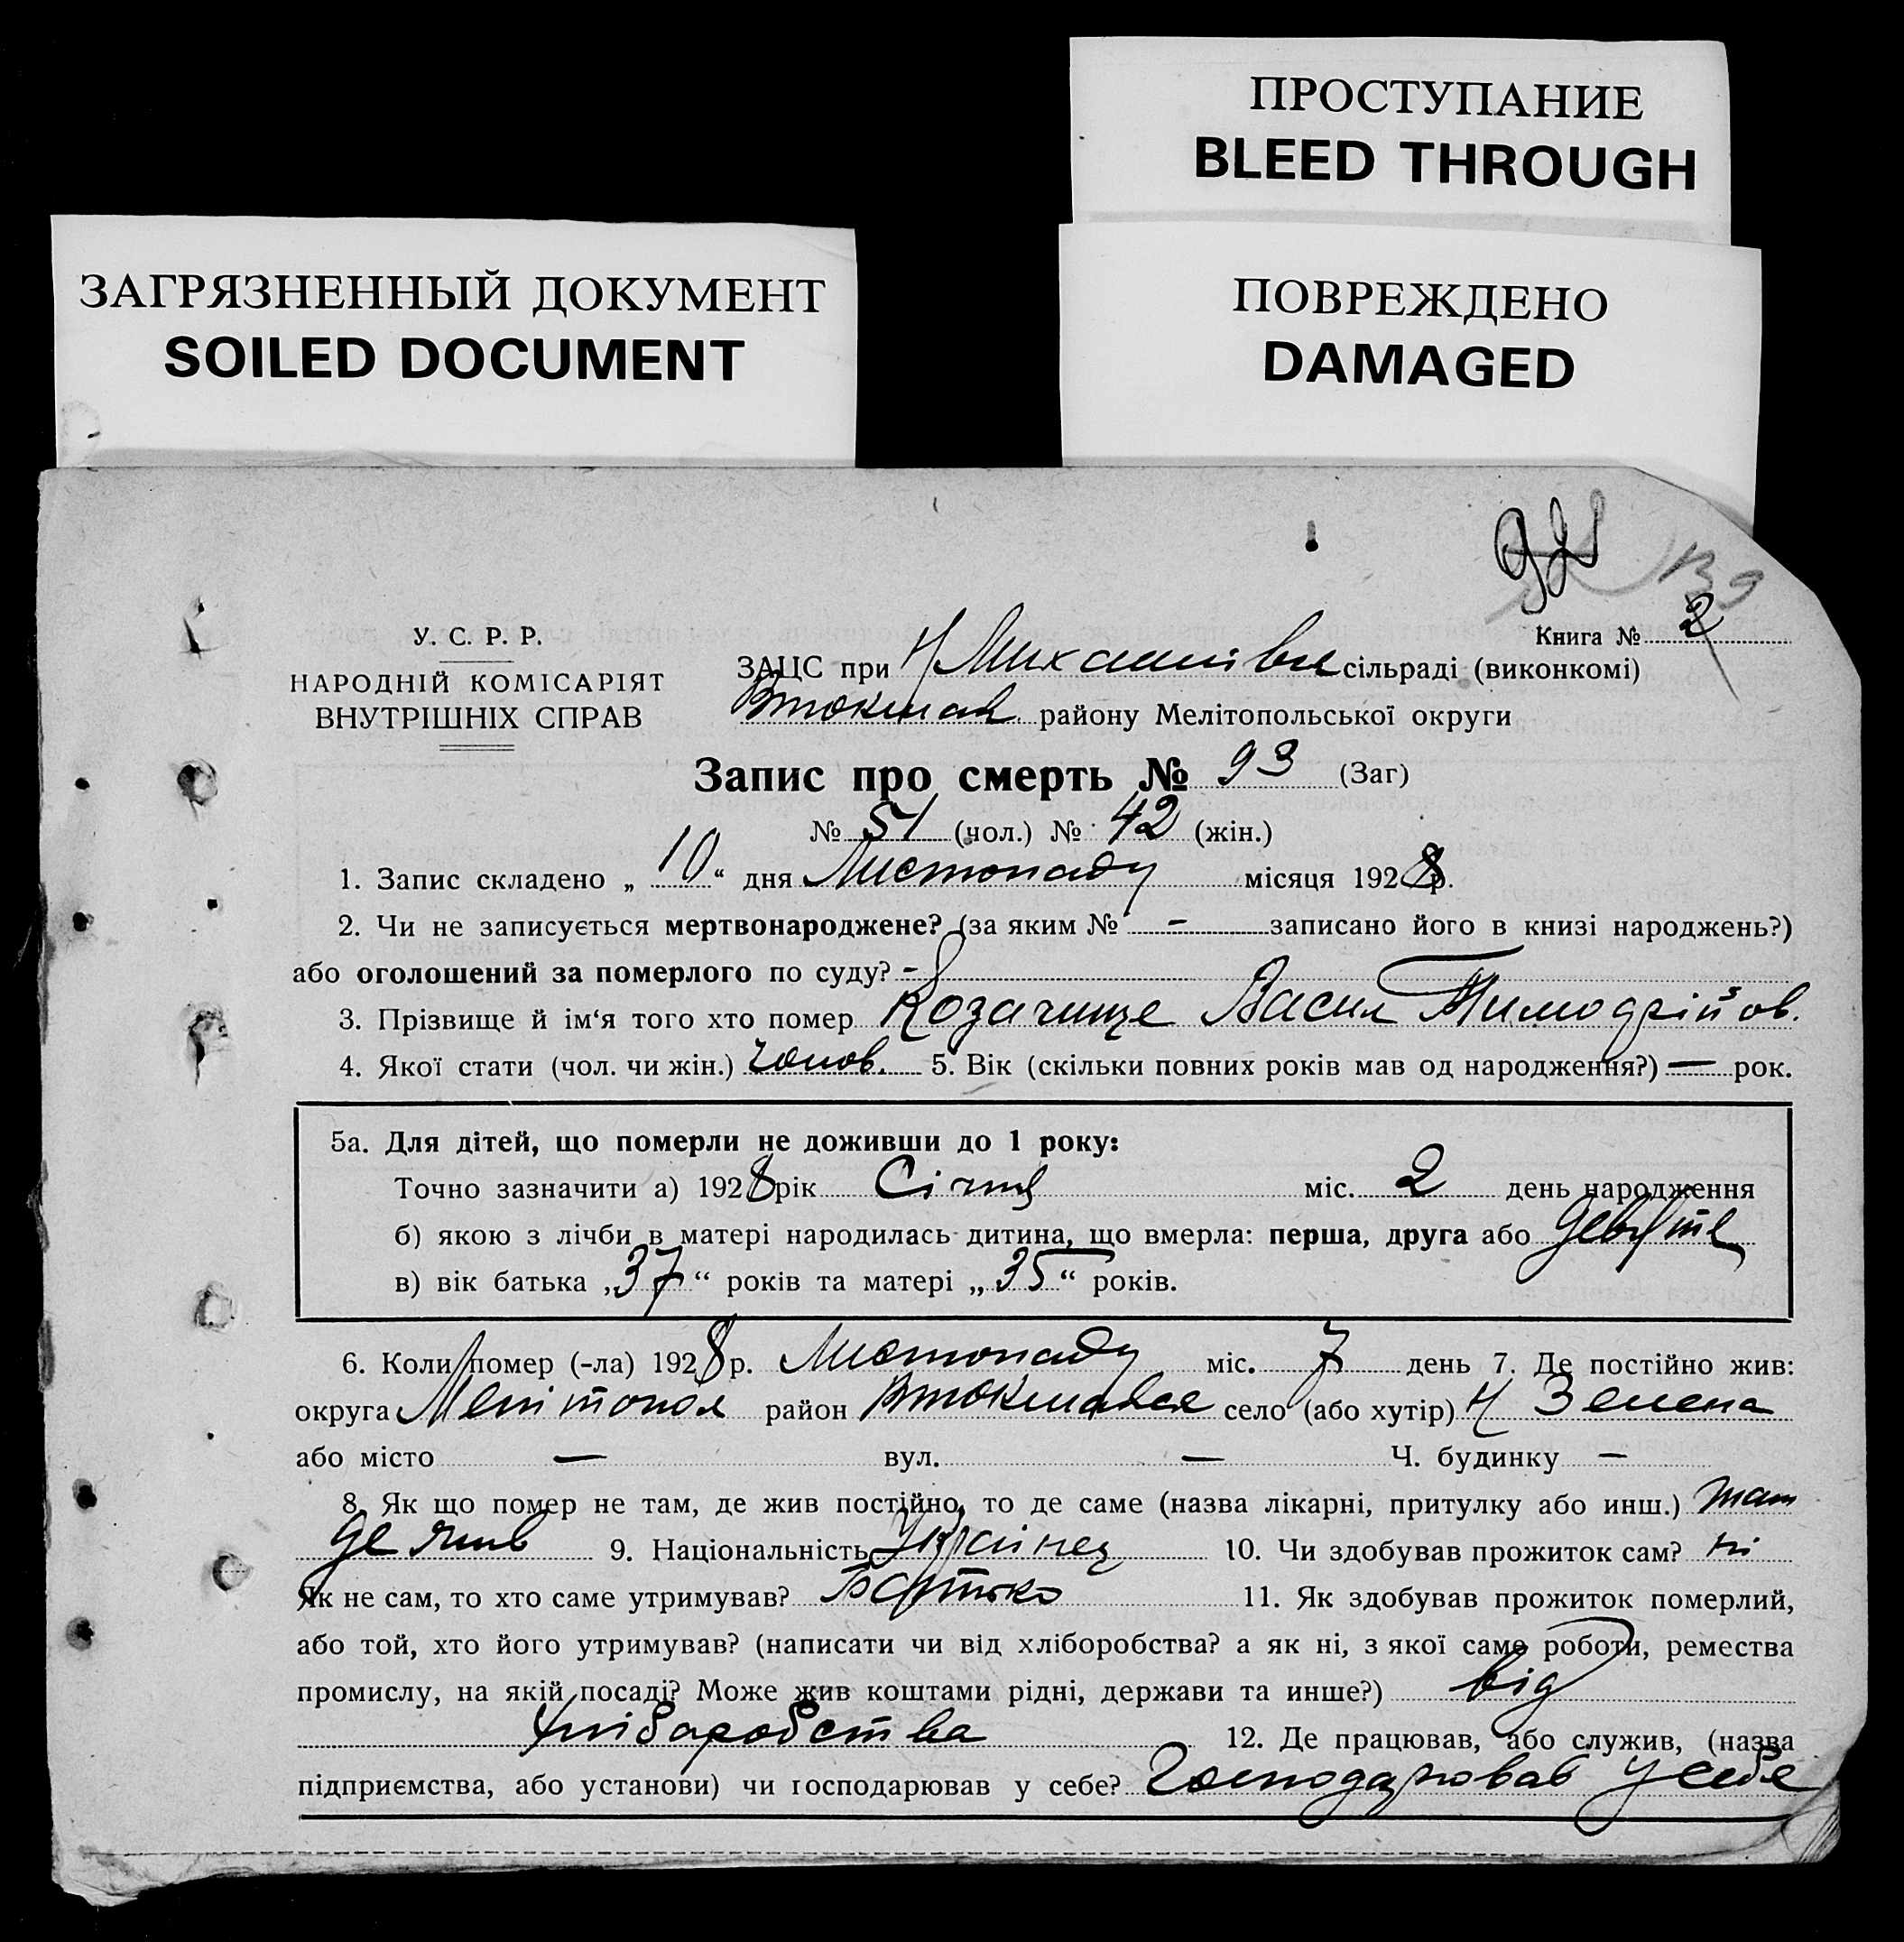 ПРОСТУПАНИЕ
BLEED THROUGH
ЗАГРЯЗНЕННЫЙ ДОКУМЕНТ
SOILED DOCUMENT
ПОВРЕЖДЕНО
DAMAGED
139
Книга № 2
У. С. Р. Р.
НАРОДНІЙ КОМІСАРІЯТ
ВНУТРІШНІХ СПРАВ
ЗАЦС при Н Михайлівск сільраді (виконкомі)
Втокмак району Мелітопольської округи
Запис про смерть № 93 (Заг)
№ 51 (чол.) № 42 (жін.)
1. Запис складено „ 10 “ дня Листопаду місяця 1928 р.
2. Чи не записується мертвонароджене? (за яким № - записано його в книзі народжень?)
або оголошений за померлого по суду? -
3. Прізвище й ім‘я того хто помер Козачище Васил
4. Якої стати (чол. чи жін.) чолов. 5. Вік (скільки повних років мав од народження?) — рок.
5а. Для дітей, що померли не доживши до 1 року:
Точно зазначити а) 1928 рік Січня міс. 2 день народження
б) якою з лічби в матері народилась дитина, що вмерла: перша, друга або девята
в) вік батька „37“ років та матері „35“ років.
6. Коли помер (-ла) 1928 р. Листопаду міс. 7 день 7. Де постійно жив:
округа Мелітопол район Втокмавск село (або хутір) Н Зелена
або місто — вул. — Ч. будинку —
8. Як що помер не там, де жив постійно, то де саме (назва лікарні, притулку або инш.) там
де жив 9. Національність Українец 10. Чи здобував прожиток сам? ні
Як не сам, то хто саме утримував? Батько 11. Як здобував прожиток померлий,
або той, хто його утримував? (написати чи від хліборобства? а як ні, з якої саме роботи, ремества
промислу, на якій посаді? Може жив коштами рідні, держави та инше?) від
хліборобства 12. Де працював, або служив, (назва
підприємства, або установи) чи господарював у себе? Господарював у себе